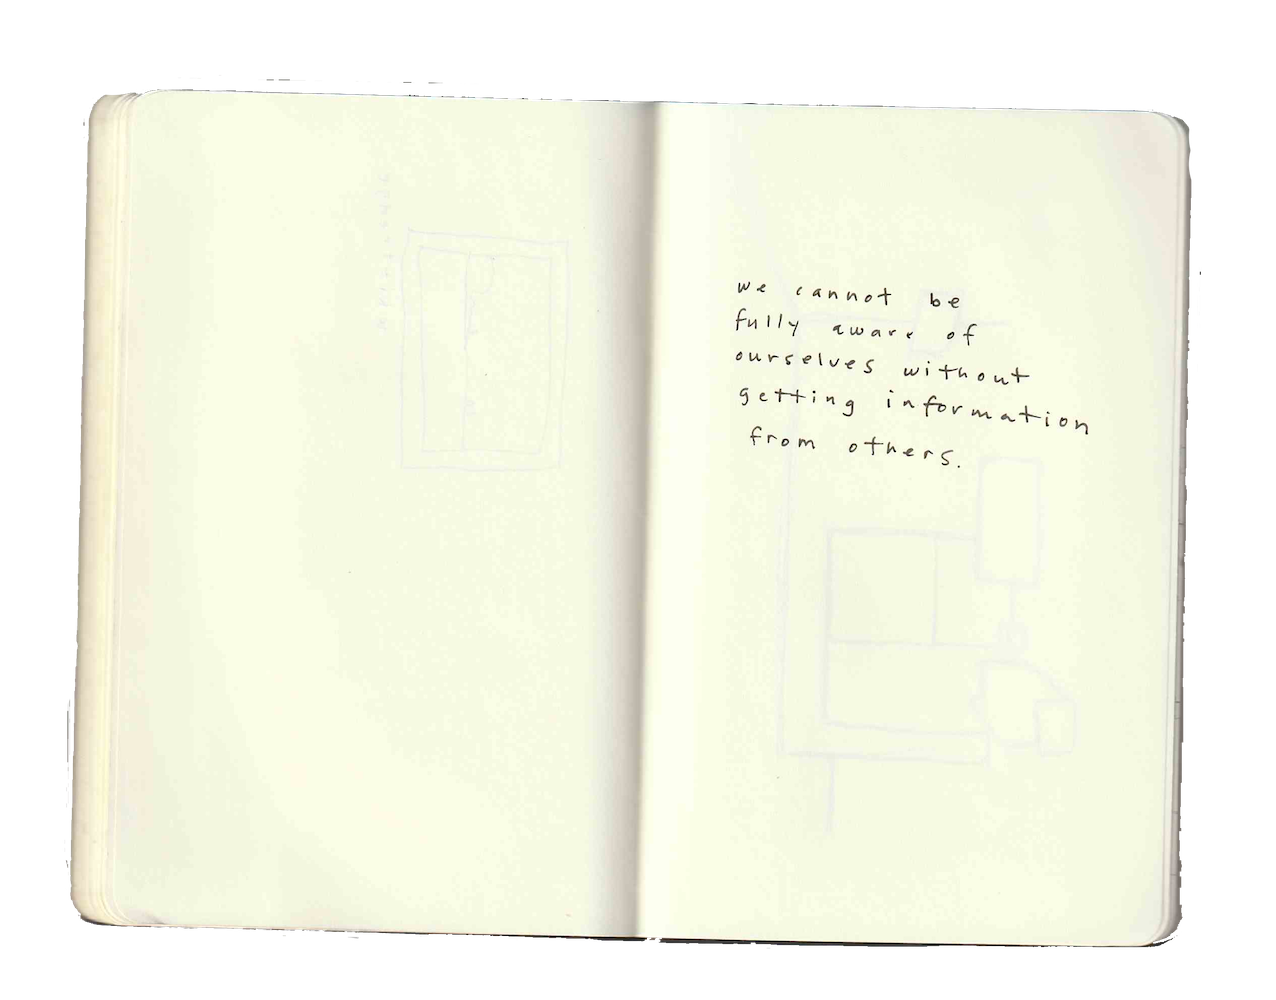 we cannot be
fully aware of
ourselves without
getting information
from others.